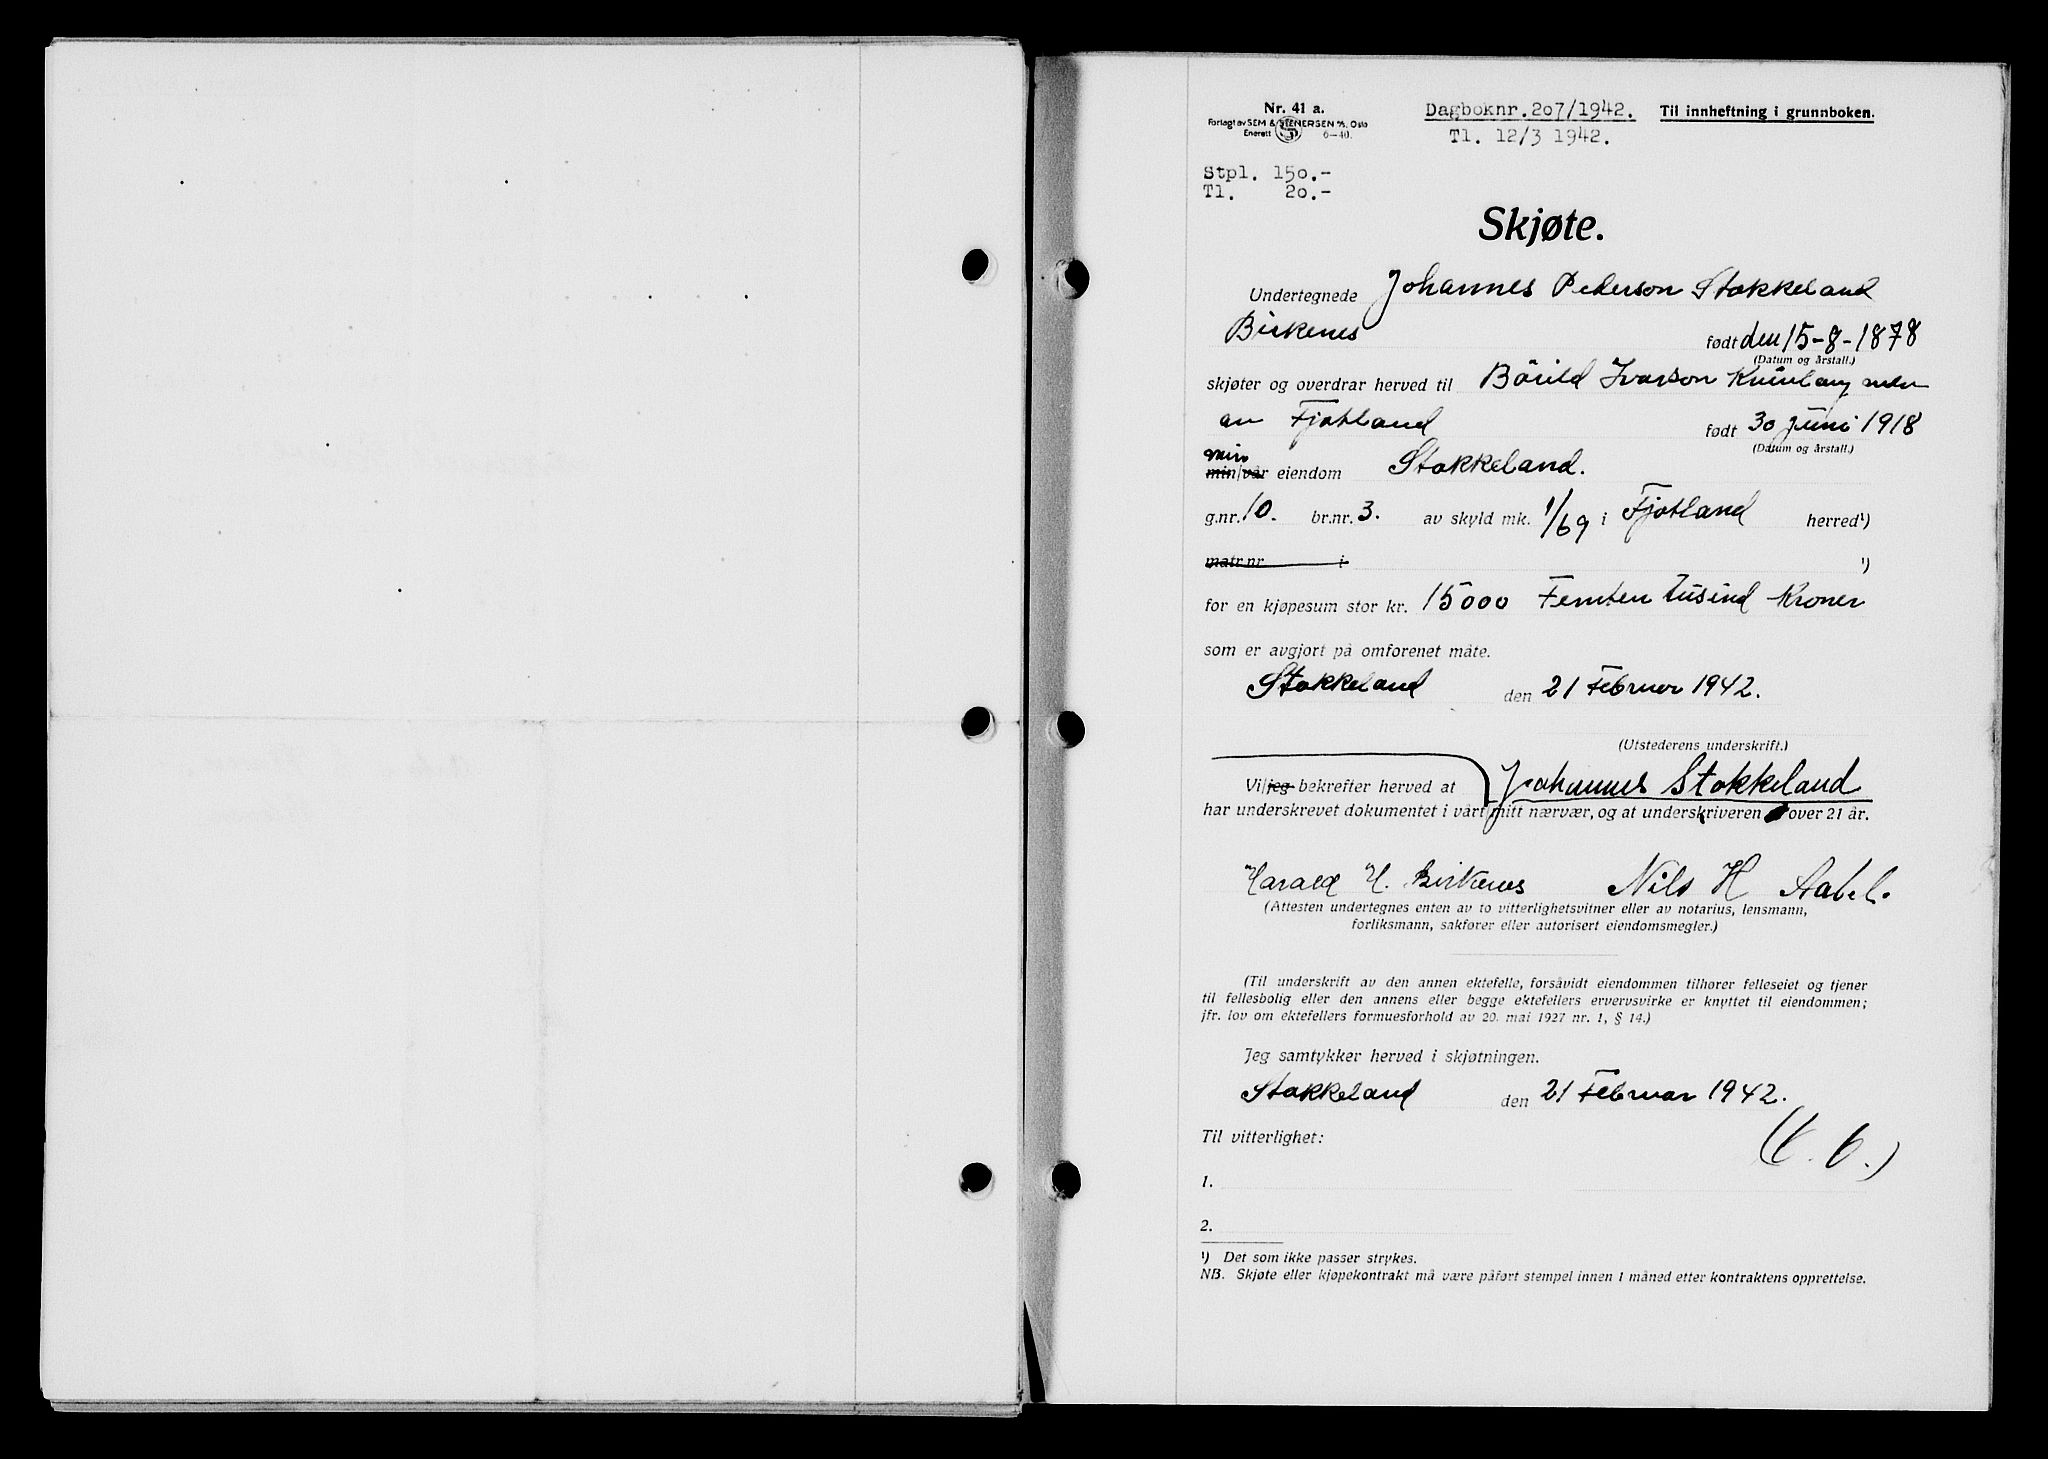 Nr. 41 a.
Forlagt av SEM & STENERSEN A/S, Oslo
Enerett 6–40.
Dagboknr. 207/1942.
Tl. 12/3 1942.
Til innheftning i grunnboken.
Stpl. 150.-
Tl. 20.-
Skjøte.
Undertegnede Johannes Pederson Stokkeland
Birkenes født den 15-8-1878
(Datum og årstall.)
skjøter og overdrar herved til Bårild Ivarson Kvinlaug
Fjotland født 30 juni 1918
(Datum og årstall.)
min
min/vår eiendom Stokkeland.
g.nr. 10. br.nr. 3. av skyld mk. 1/69 i Fjotland herred¹)
matr.nr i ¹)
for en kjøpesum stor kr. 15000 Femten tusind Kroner
som er avgjort på omforenet måte.
Stokkeland den 21 Februar 1942.
(Utstederens underskrift.)
Vi/jeg bekrefter herved at Johannes Stokkeland
har underskrevet dokumentet i vårt/mitt nærvær, og at underskriveren over 21 år.
Harald H. Birkenes Nils H Aabel.
(Attesten undertegnes enten av to vitterlighetsvitner eller av notarius, lensmann,
forliksmann, sakfører eller autorisert eiendomsmegler.)
(Til underskrift av den annen ektefelle, forsåvidt eiendommen tilhører felleseiet og tjener
til fellesbolig eller den annens eller begge ektefellers ervervsvirke er knyttet til eiendommen;
jfr. lov om ektefellers formuesforhold av 20. mai 1927 nr. 1, § 14.)
Jeg samtykker herved i skjøtningen.
Stokkeland den 21 Februar 1942.
Til vitterlighet:
1.
2.
¹) Det som ikke passer strykes.
NB. Skjøte eller kjøpekontrakt må være påført stempel innen 1 måned etter kontraktens opprettelse.